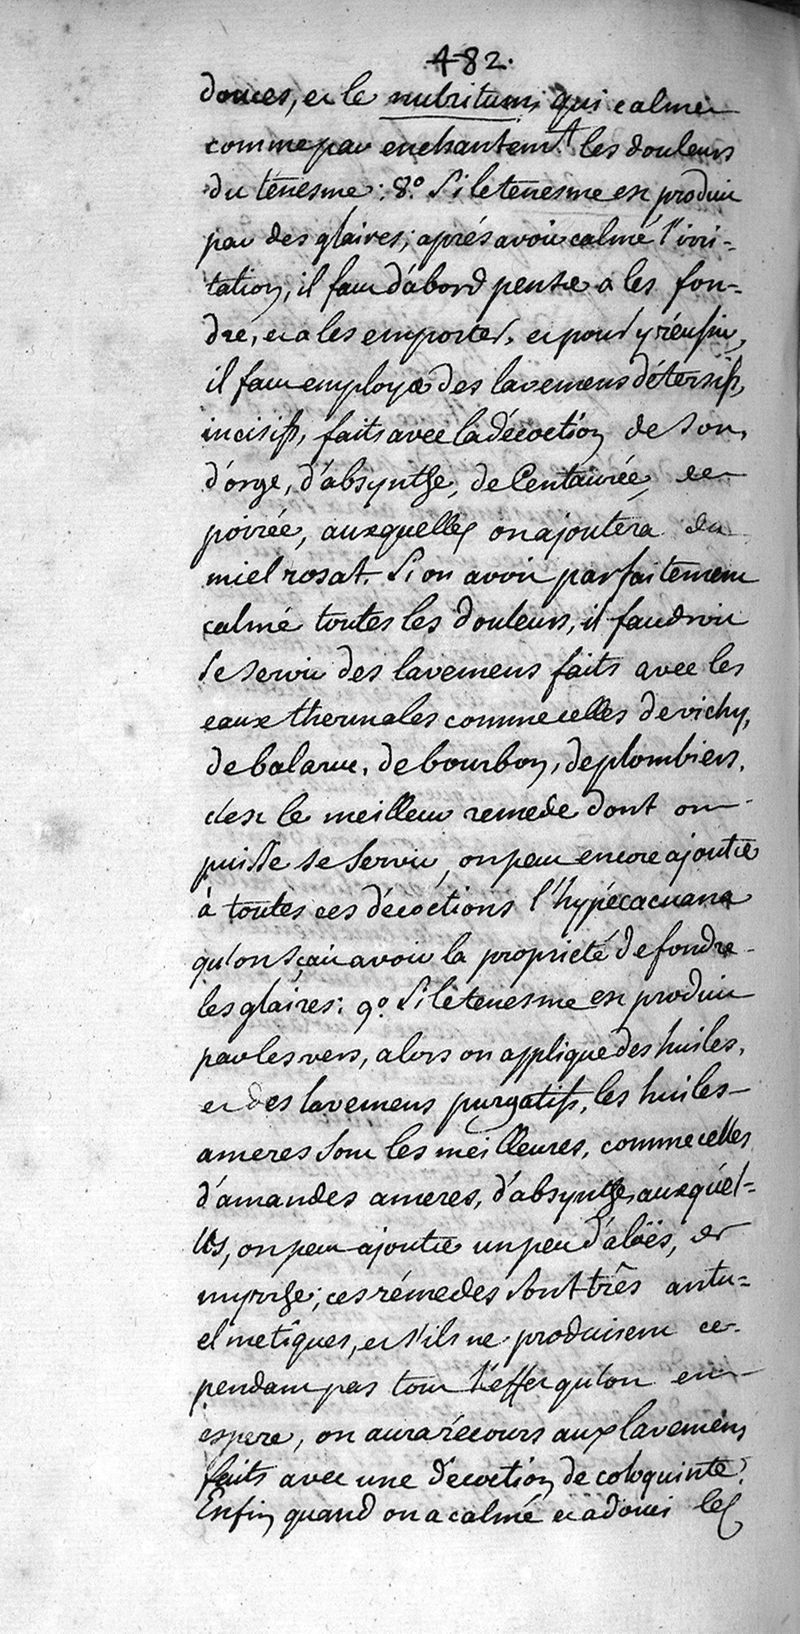 482.
douces, et le nutritum, qui calme
comme par enchantemt les douleurs
du ténesme: 8.° Si le tenesme est produit
par des glaires; aprés avoir calmé l'irri-
tation, il faut d'abord penser a les fon-
dre, et a les emporter, et pour y réussir,
il faut employer des lavemens détersifs,
incisifs, faits avec la décoction de son,
d'orge, d'absynthe, de Centaurée, de
poirée, auxquelles on ajoutera du
miel rosat. Si on avoit parfaitement
calmé toutes les douleurs, il faudroit
se servir des lavemens faits avec les
eaux thermales comme celles de vichy,
de balaruc, de bourbon, de plombiers.
c'est le meilleur remede dont on
puisse se servir, on peut encore ajouter
à toutes ces décoctions l'hypécacuana
qu'on sçait avoir la propriété de fondre
les glaires: 9.° Si le tenesme est produit
par les vers, alors on applique des huiles,
et des lavemens purgatifs, les huiles
ameres sont les meilleures, comme celles
d'amandes ameres, d'absynthe, auxquel=
les, on peut ajouter un peu d'aloës, et
myrrhe; ces rémedes sont três antu=
elmetiques, et s'ils ne produisent ce-
pendant pas tout l'effet qu'on en
espere, on aura récours aux lavemens
faits avec une décoction de coloquinte.
Enfin quand on a calmé et adouci les